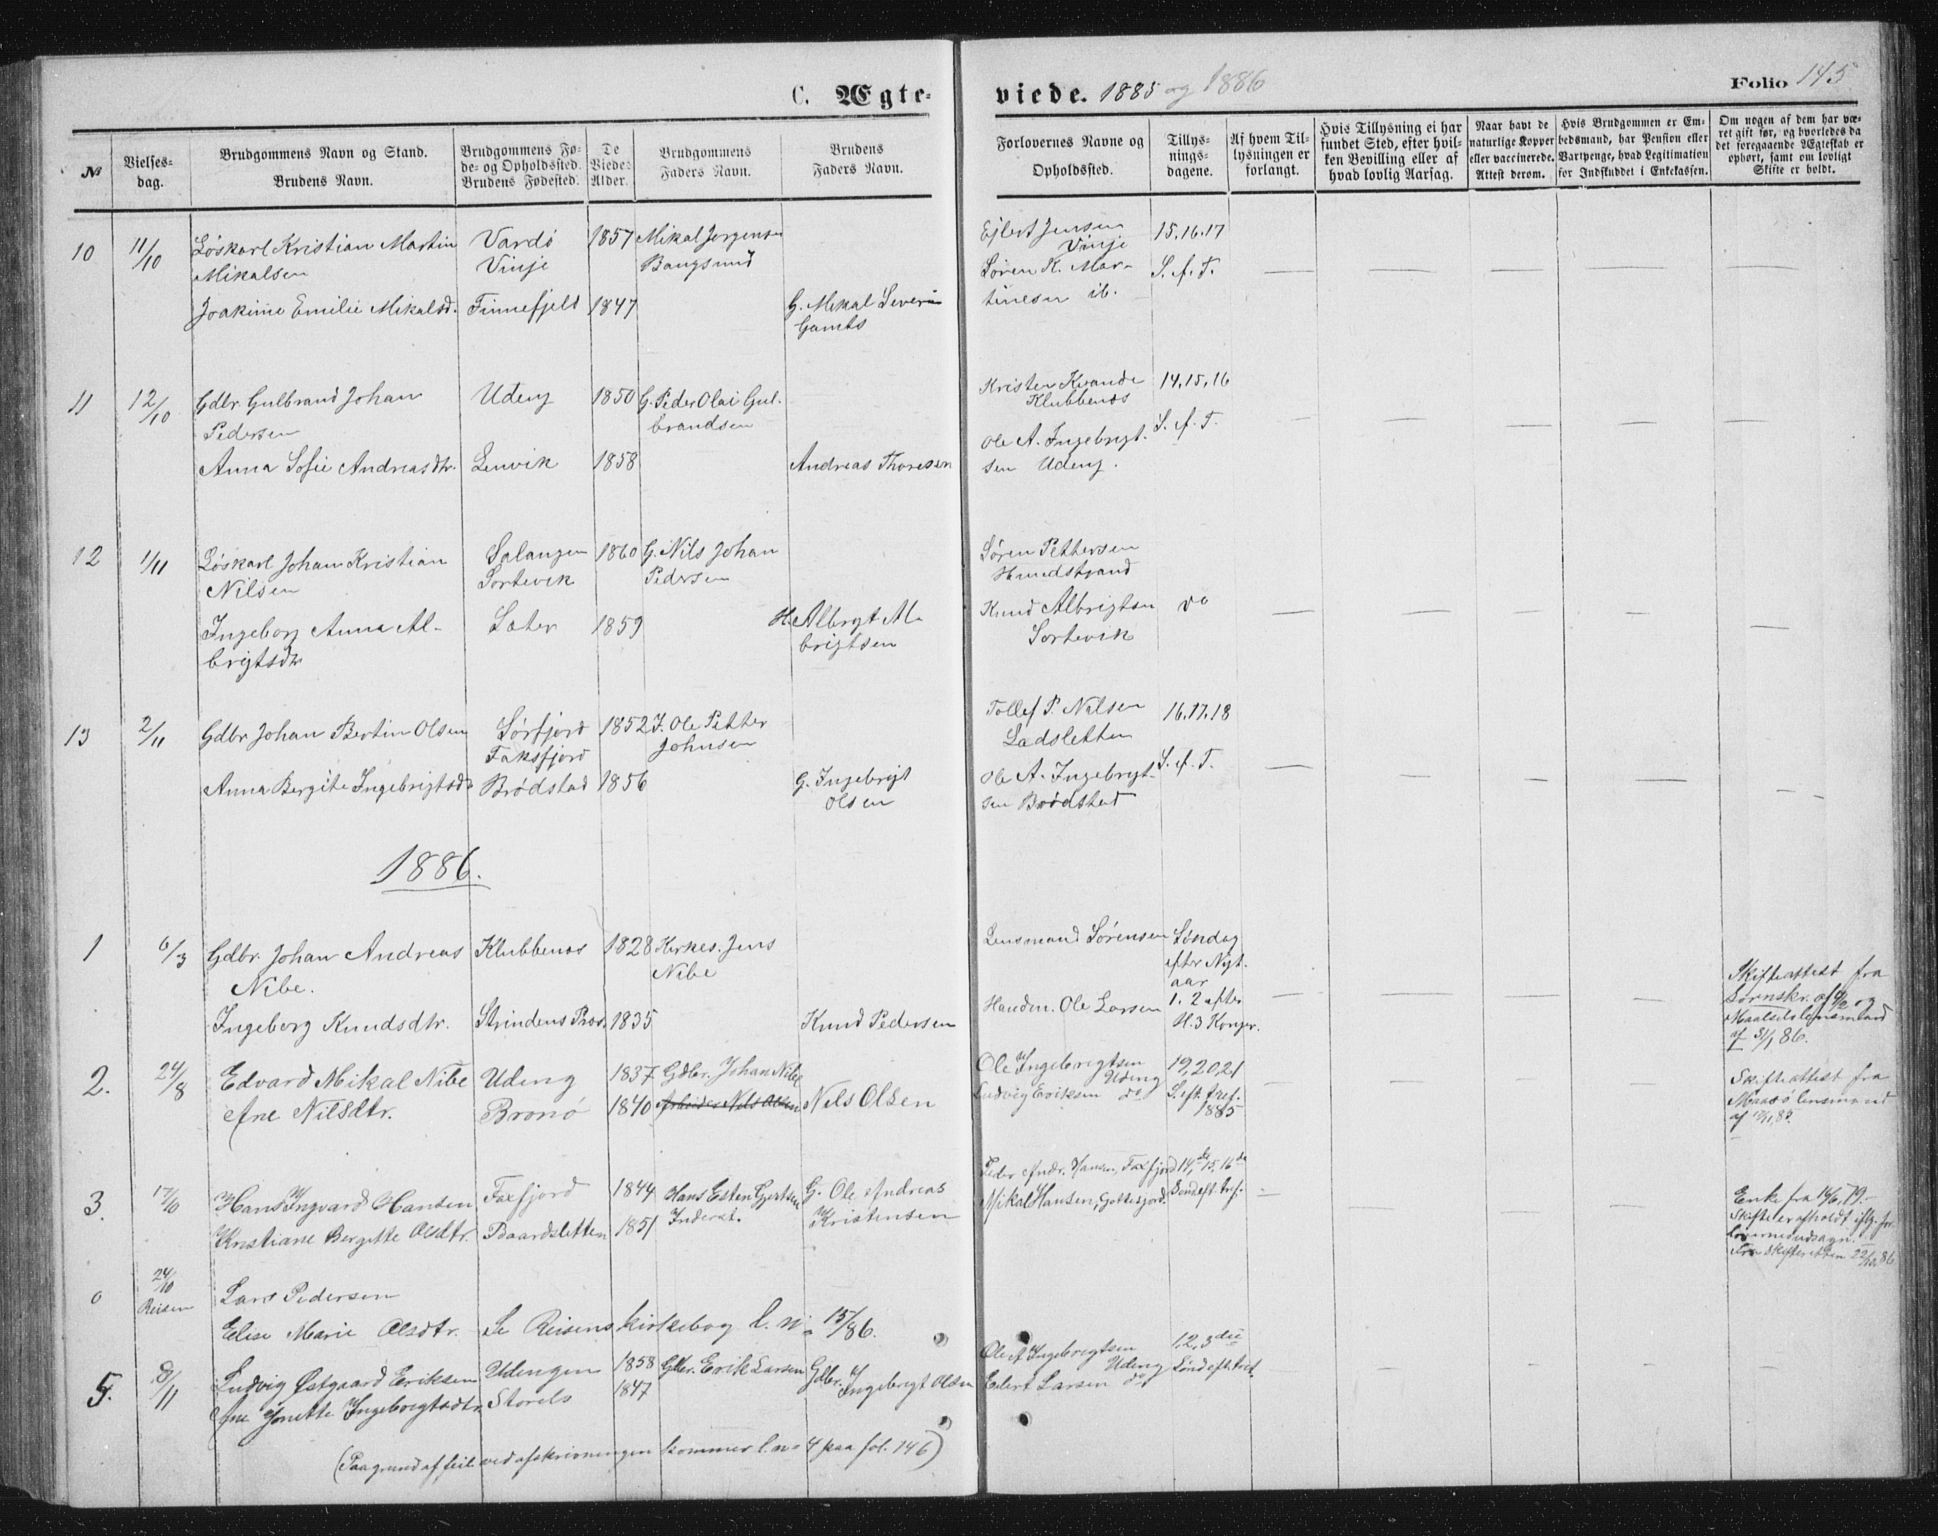 C. Ægte-
viede. 1885 og 1886
Folio 145
№
Vielses-
dag.
Brudgommens Navn og Stand.
Brudens Navn.
Brudgommens Fø-
de- og Opholdssted.
Brudens Fødested.
De
Viedes
Alder.
Brudgommens
Faders Navn.
Brudens
Faders Navn.
Forlovernes Navne og
Opholdssted.
Tillys-
nings-
dagene.
Af hvem Til-
lysningen er
forlangt.
Hvis Tillysning ei har
fundet Sted, efter hvil-
ken Bevilling eller af
hvad lovlig Aarsag.
Naar havt de
naturlige Kopper
eller vaccinerede.
Attest derom.
Hvis Brudgommen er Em-
bedsmand, har Pension eller
Vartpenge, hvad Legitimation
for Indskuddet i Enkekassen.
Om nogen af dem har væ-
ret gift før, og hvorledes da
det foregaaende Ægteskab er
ophørt, samt om lovligt
Skifte er holdt.
10 11/10 Løskarl Kristian Martin Vardø 1857 Mikal Jørgensen Ejlert Jensen 15.16.17
Mikalsen Vinje Bangsund Vinje
Søren K. Mar- S. e. f. T.
Joakime Emilie Mikalsd. Finnefjeld 1847 G. Mikal Severin tinesen ib.
Gamts
11 12/10 Gdbr Gulbrand Johan Udeng 1850 G. Peder Olai Gul- Kristen Kvande 14,15,16
Pedersen brandsen Klubbenes
Ole A. Ingebrigt- S. e. f. T.
Anna Sofie Andreasdtr. Lenvik 1858 Andreas Thoresen sen Udeng.
12 1/11 Løskarl Johan Kristian Salangen 1860 G. Nils Johan Søren Pettersen
Nilsen Sortevik Pedersen Hundstrand
Ingeborg Anna Al- Sæter 1859 H. Albrigt Al- Knud Albrigtsen do
brigtsdtr brigtsen Sortevik
13 2/11 Gdbr Johan Bertin Olsen Sørfjord 1852 I. Ole Petter Tollef P. Nilsen 16.17.18
Faksfjord Johnsen Ladsletten
Anna Bergite Ingebrigtsd Brødstad 1856 G. Ingebrigt Ole A. Ingebrigt- S. e. f. T.
Olsen sen Brødstad
1886.
1 6/3 Gdbr. Johan Andreas Klubbenes 1828 Kirkes. Jens Lensmand Sørensen Søndag
Nibe. Nibe efter Nyt-
aar
Skifteattest fra
Ingeborg Knudsdtr. Strindens Pres. 1835 Knud Pedersen Handm. Ole Larsen 1. 2 efter
H. 3 Konger.
Sornskr. af 4/2 og
Maalselvs lensmand
af 31/1 86.
2. 24/8 Edvard Mikal Nibe Udeng 1837 Gdbr. Johan Nibe Ole Ingebrigtsen 19,20,21
Udeng
Ane Nilsdtr. Brønø 1840 Arbeider Nils Olsen Nils Olsen Ludvig Eriksen do S. eft. tref.
1885
Skifteattest fra
Maasø lensmand
3. 17/10 Hans Ingvard Hansen Faxfjord 1844 Hans Esten Gjertsen G. Ole Andreas Peder Andr. Hansen, Faxfjord 14,de 15,16de
Inderøl. Kristensen Mikal Hansen, Gottesjord. Sønd eft. tref.
Kristiane Bergitte Olsdtr. Baardsletten 1851
Enke fra 14/6,79.
Skifte er afholdt iflg. for-
lovernes udsagn.
Fra skifteretten 22/10 86
0 24/10 Lars Pedersen
Reisen
Elise Marie Olsdtr. Se Reisens kirkebog l. no 15/86.
5. 8/11 Ludvig Østgaard Eriksen Udengen 1858 Gdbr. Erik Larsen Gdbr. Ole A Ingebrigtsen 1,2,3die
Udeng
Ane Jonette Ingebrigtsdtr. Storels 1847 Ingebrigt Olsen Eilert Larsen do Sønd eft. tref.
(Paa grund af feil ved afskrivningen kommer l. no 4 paa fol. 146)